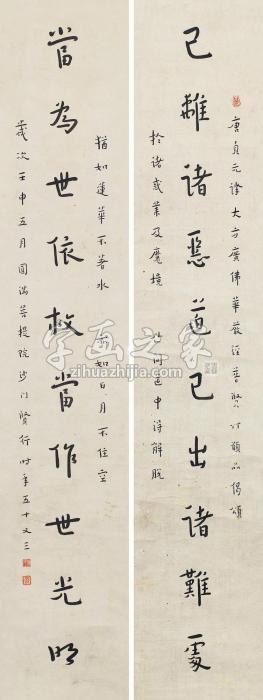 唐貞元譯大方廣佛華嚴經普賢行願品偈頌
已離諸惡道已出諸難處
於諸惑業及魔境 世間道中得解脫
猶如蓮華不著水 亦如日月不住空
當為世依救當作世光明
歲次壬申五月圓滿菩提院沙門賢行時年五十又三
字画之家
zihuazhijia.com